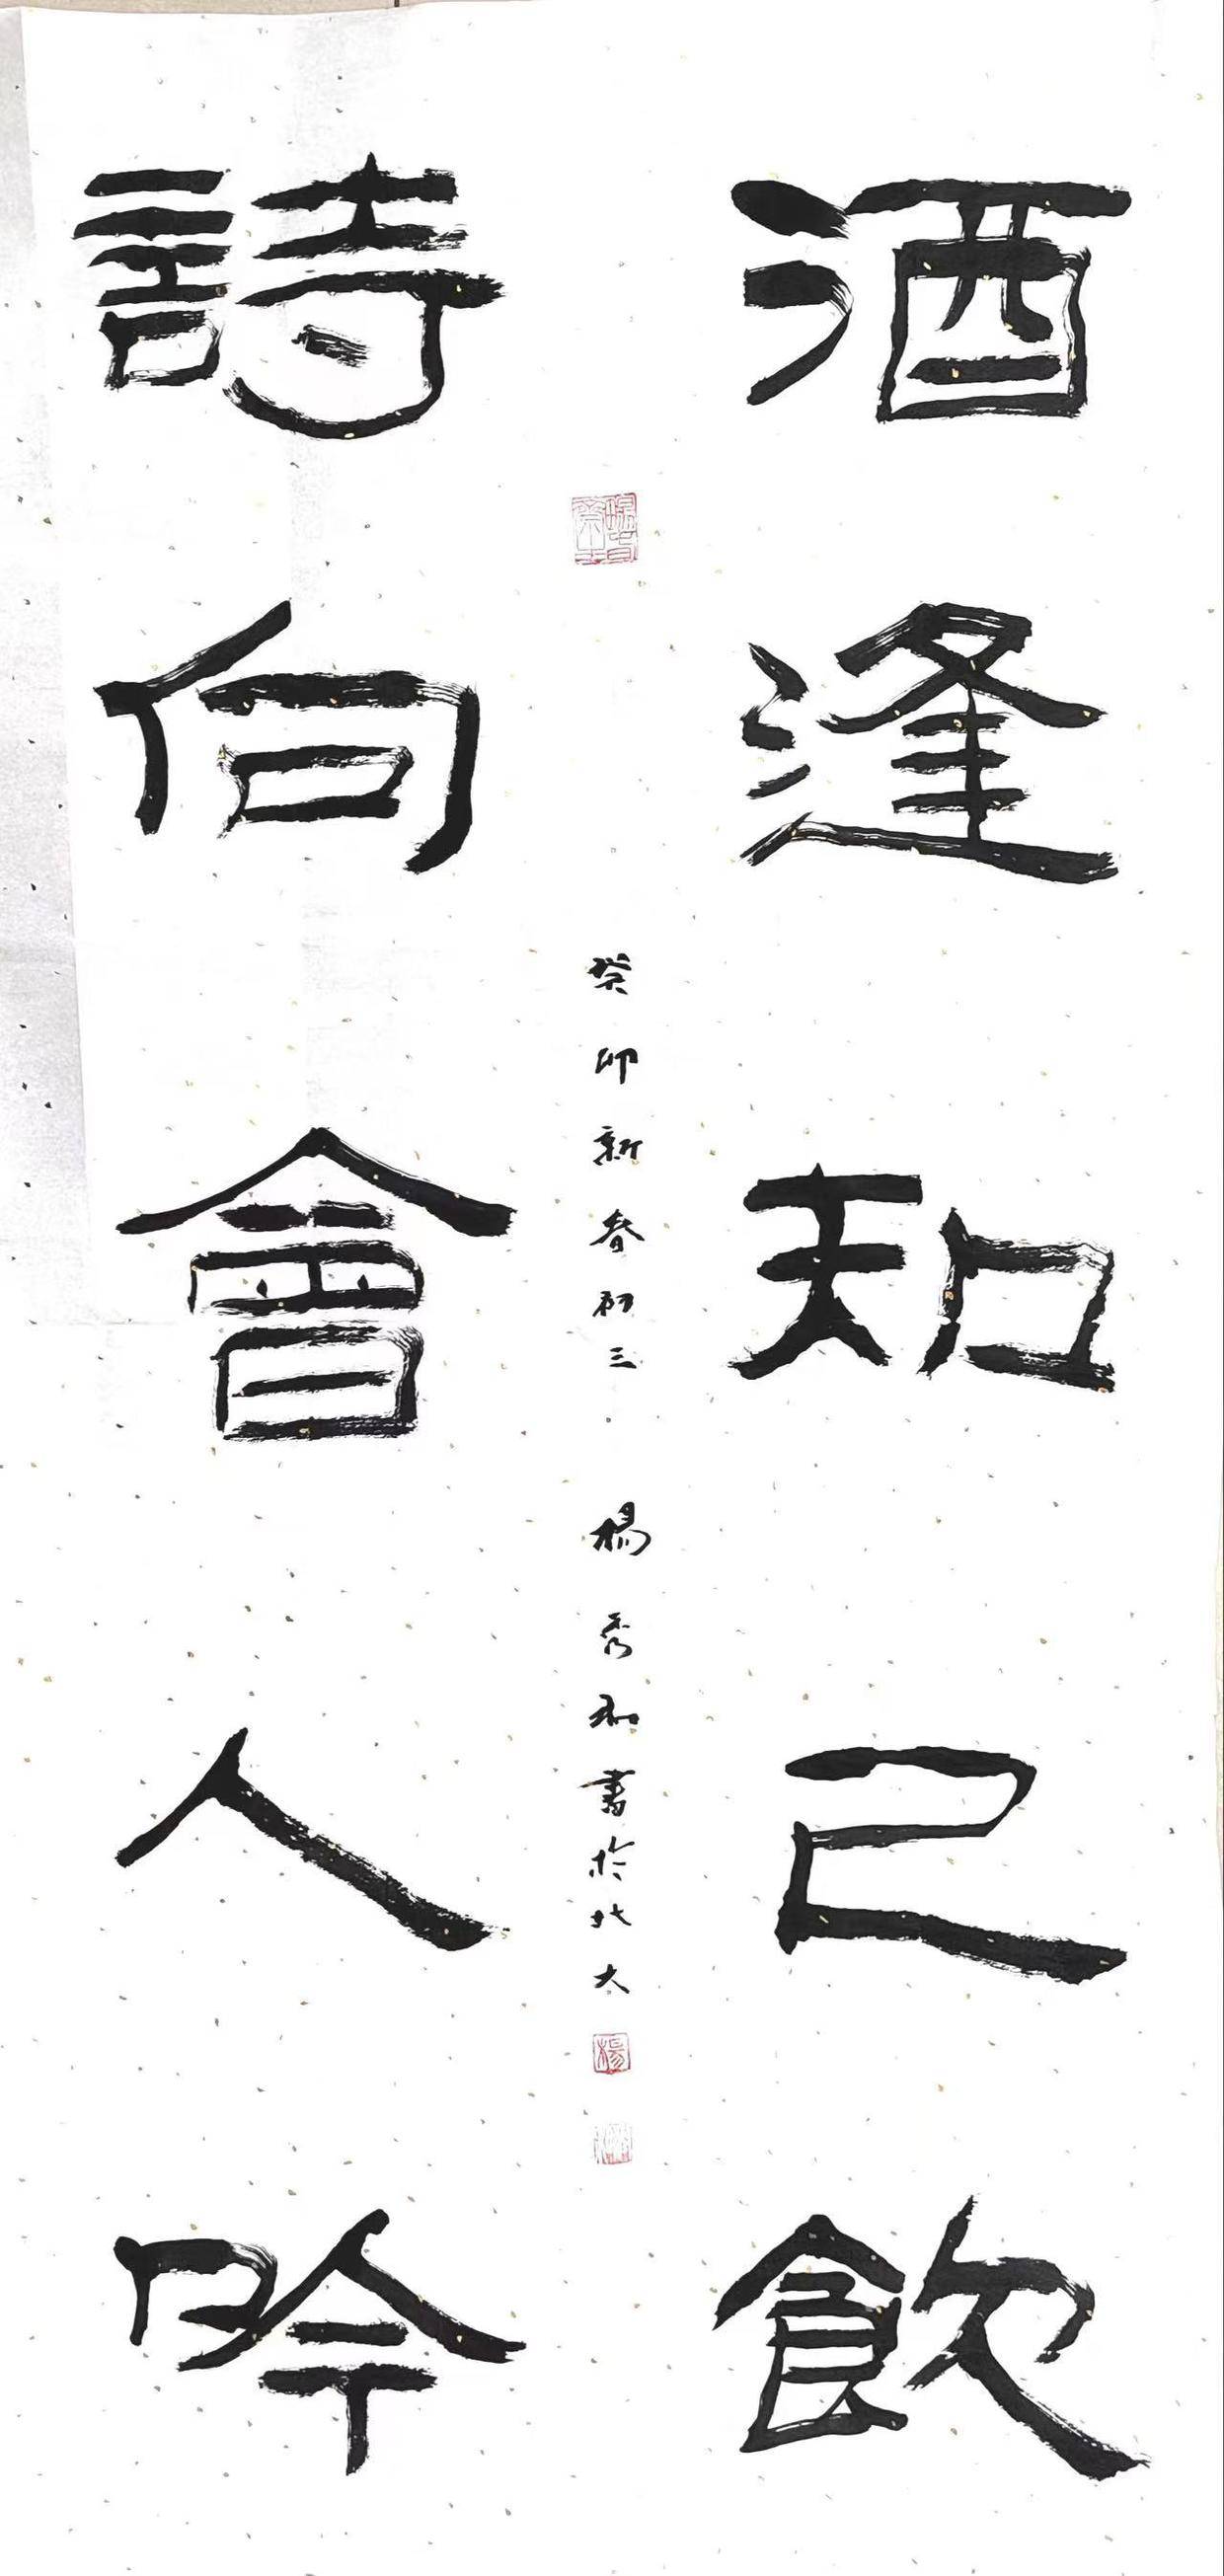 酒逢知己飲
詩向會人吟
癸卯新春初三楊秀和書於北大
楊